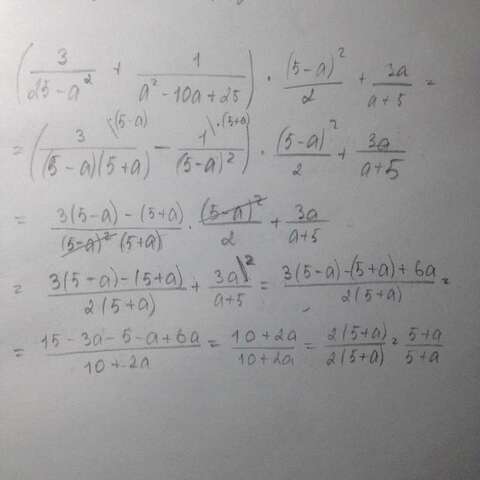 (3/(25-a²) + 1/(a²-10a+25)) · (5-a)²/2 + 3a/(a+5) =
= (3\(5-a)/((5-a)(5+a)) - 1\·(5+a)/(5-a)²) · (5-a)²/2 + 3a/(a+5)
= (3(5-a)-(5+a))/((5-a)²(5+a)) · (5-a)²/2 + 3a/(a+5)
= (3(5-a)-(5+a))/(2(5+a)) + 3a\2/(a+5) = (3(5-a)-(5+a)+6a)/(2(5+a)) =
= (15-3a-5-a+6a)/(10+2a) = (10+2a)/(10+2a) = 2(5+a)/(2(5+a)) = (5+a)/(5+a)